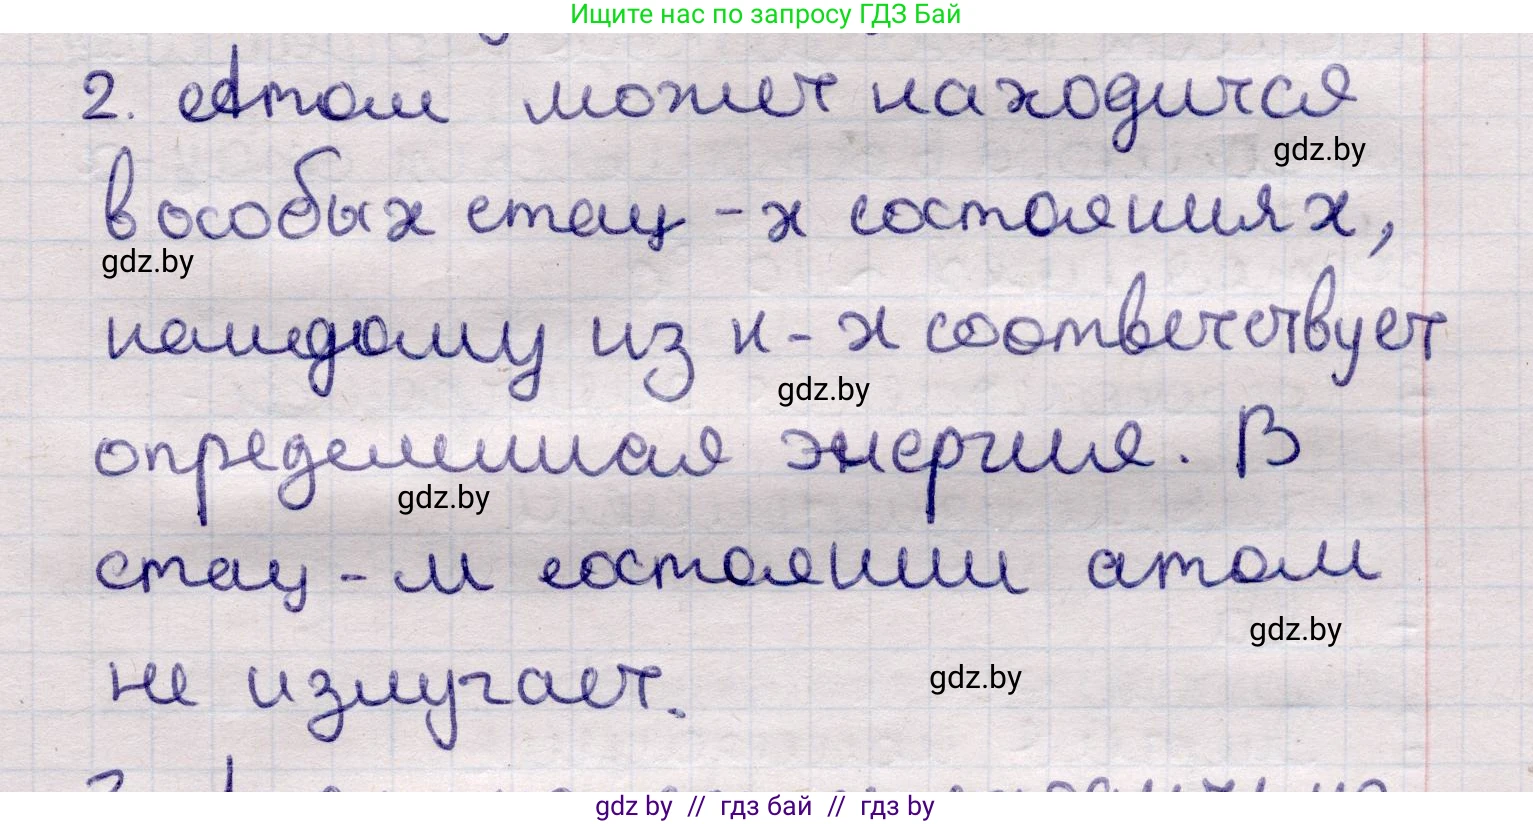 Ищите нас по запросу ГДЗ Бай
2. Атом может находится
gdz.by
в особых стац-х состояниях,
gdz.by
каждому из к-х соответствует
gdz.by
определенная энергия. В
gdz.by
стац-м состоянии атом
gdz.by
не излучает.
gdz.by
gdz by // гдз бай // гдз by